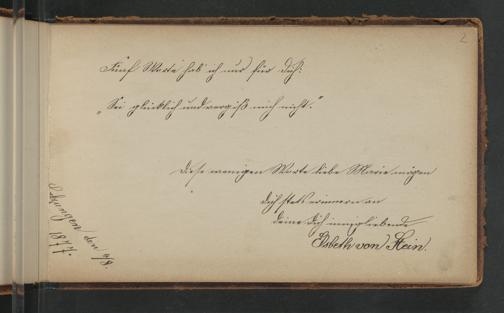 2
Fünf Worte hab' ich nur für Dich:
„Sei glücklich und vergiß mich nicht."
Diese wenigen Worte liebe Marie mögen
Dich stets erinnern an
Deine Dich innig liebende
Elsbeth von Stein.
den 9/8.
1877.